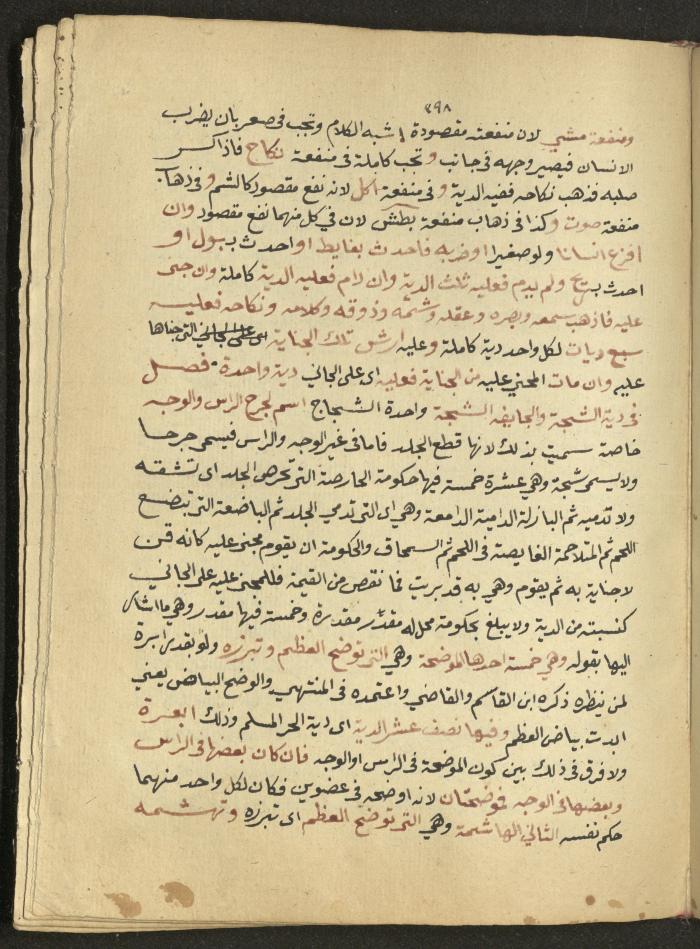 ٤٩٨
ومنفعة مشي لان منفعته مقصودة اشبه الكلام وتجب في صعر بان يضرب
الانسان فيصير وجهه في جانب وتجب كاملة في منفعة نكاح فاذا كسر
صلبه فذهب نكاحه ففيه الدية وفي منفعة اكل لانه نفع مقصود كالشم وفي ذهاب
منفعة صوت وكذا في ذهاب منفعة بطش لان في كل منهما نفع مقصود وان
افزع انسانا ولو صغيرا اوضربه فاحدث بغايط او احدث ببول او
احدث بريح ولم يدم فعليه ثلث الدية وان دام فعليه الدية كاملة وان جنى
عليه فاذهب سمعه وبصره وعقله وشمه وذوقه وكلامه ونكاحه فعليه
سبع ديات لكل واحد دية كاملة وعليه ارش تلك الجناية اي على الجاني التي جناها
عليه وان مات المجني عليه من الجناية فعليه اي على الجاني دية واحدة فصل
في دية الشجة والجايفة الشجة واحدة الشجاج اسم لجرح الراس والوجه
خاصة سميت بذلك لانها قطع الجلد فاما في غير الوجه والراس فيسمى جرحا
ولا يسمى شجة وهي عشرة خمسة فيها حكومة الحارصة التي تحرص الجلد اى تشقه
ولا تدميه ثم البازلة الدامية الدامعة وهي اى التي تدمي الجلد ثم الباضعة التي تبضع
اللحم ثم المتلاحمة الغايصة في اللحم ثم السمحاق والحكومة ان يقوم مجنى عليه كانه قن
لا جناية به ثم يقوم وهي به قد بريت فما نقص من القيمة فللمجني عليه على الجاني
كنسبته من الدية ولا يبلغ بحكومة محل له مقدر مقدره وخمسة فيها مقدر وهي ما اشار
اليها بقوله وهي خمسة احدها الموضحة وهي التي توضح العظم وتبرزه ولو بقدر ابرة
لمن ينظره ذكره ابن القاسم والقاضي واعتمده في المنتهى والوضح البياض يعني
ابدت بياض العظم وفيها نصف عشر الدية اى دية الحر المسلم وذلك ابعرة
ولا فرق في ذلك بين كون الموضحة في الراس او الوجه فان كان بعضها في الراس
وبعضها في الوجه فموضحتان لانه اوضحه في عضوين فكان لكل واحد منهما
حكم نفسه الثاني الهاشمة وهي التي توضح العظم اى تبرزه وتهشمه